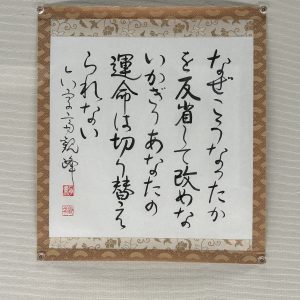 なぜこうなったか
を反省して改めな
いかぎりあなたの
運命は切り替え
られない